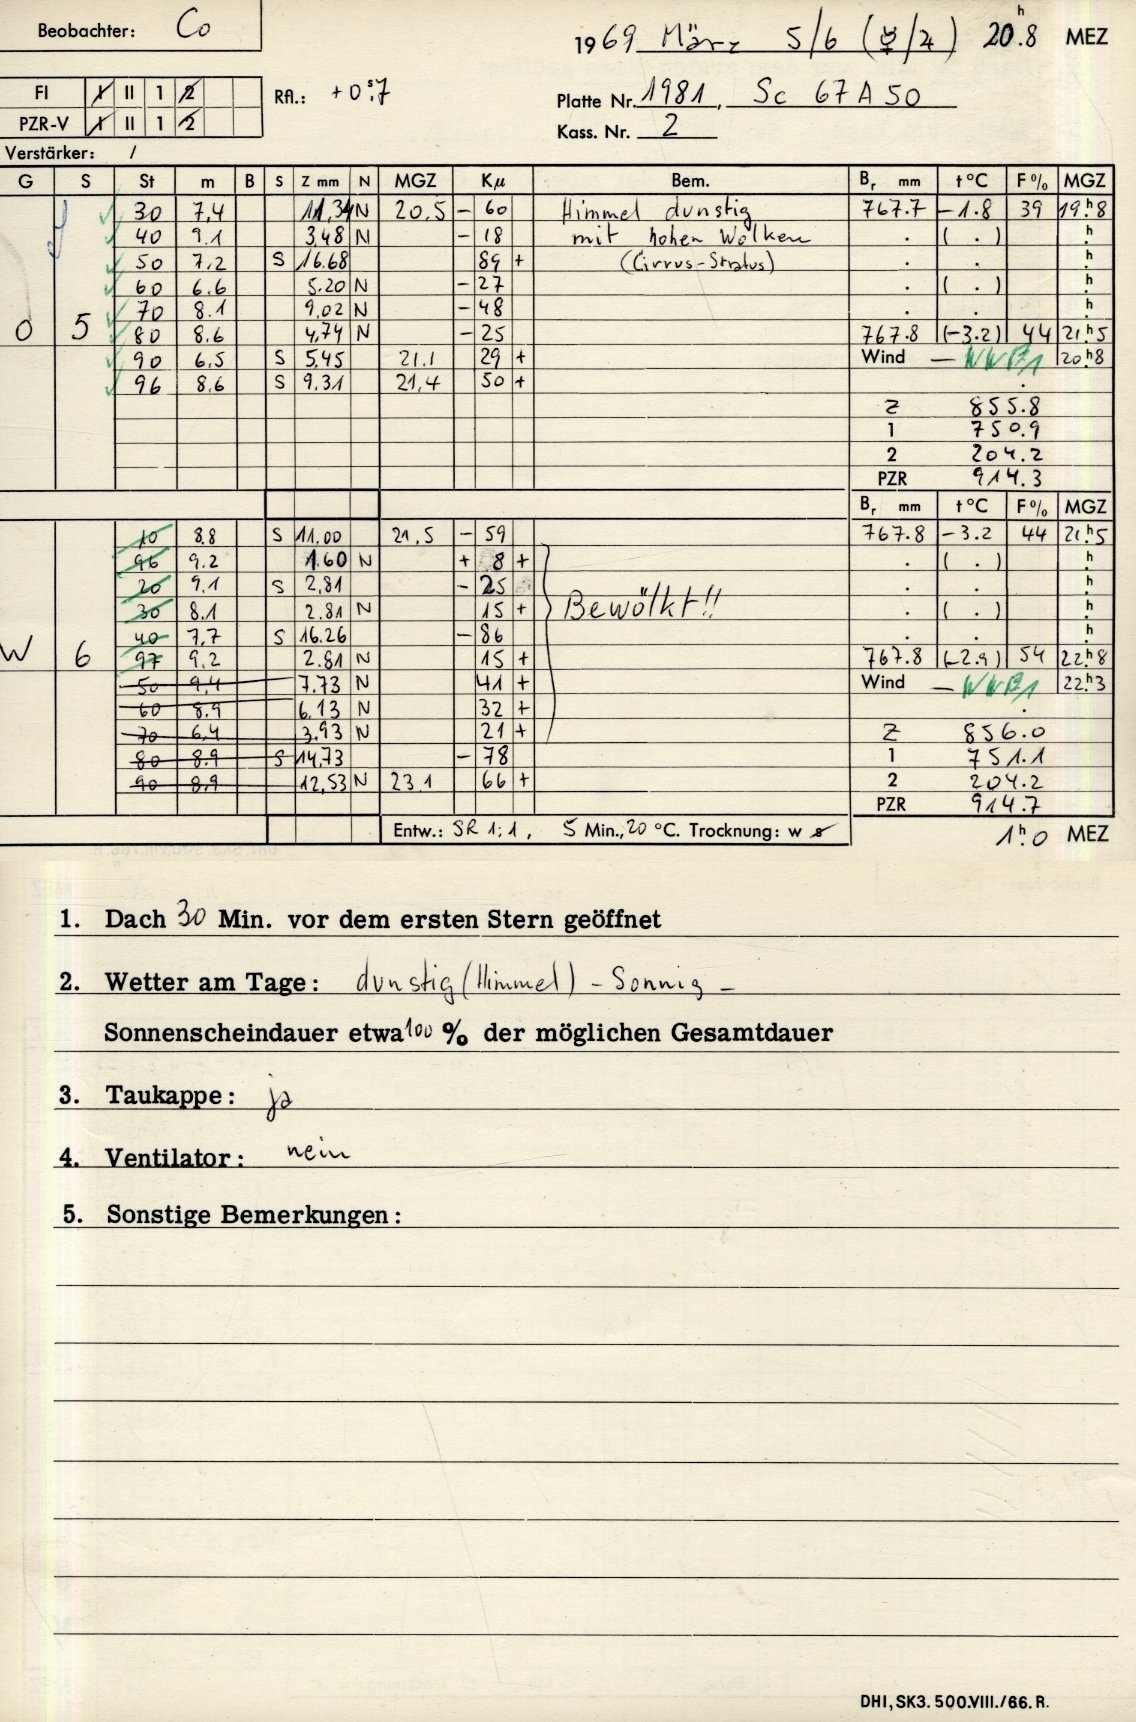 Beobachter: Co
1969 März 5/6 (☿/♃) 20.h8 MEZ
FI I II 1 2
PZR-V I II 1 2
Rfl.: +0.s7
Platte Nr. 1981, Sc 67 A 50
Kass. Nr. 2
Verstärker: /
G S St m B S Z mm N MGZ Kμ Bem. Br mm t °C F% MGZ
30 7,4 11,34 N 20,5 - 60 Himmel dunstig 767.7 -1.8 39 19.h8
40 9.1 3,48 N - 18 mit hohen Wolken . ( . ) .h
50 7,2 S 16.68 89 + (Cirrus-Stratus) . . .h
60 6.6 5.20 N - 27 . ( . ) .h
70 8.1 9,02 N - 48 . . .h
O 5 80 8.6 4,74 N - 25 767.8 (-3.2) 44 21.h5
90 6,5 S 5,45 21.1 29 + Wind — 20.h8
96 8,6 S 9,31 21,4 50 + .
Z 855.8
1 750.9
2 204.2
PZR 914.3
Br mm t °C F% MGZ
10 8,8 S 11,00 21,5 - 59 767.8 -3.2 44 21.h5
96 9.2 1.60 N + 8 + . ( . ) .h
20 9,1 S 2,81 - 25 . . .h
30 8.1 2.81 N 15 + Bewölkt!! . ( . ) .h
40 7,7 S 16.26 - 86 . . .h
W 6 97 9,2 2.81 N 15 + 767.8 (-2.9) 54 22.h8
50 9,4 7.73 N 41 + Wind — 22.h3
60 8.9 6.13 N 32 + .
70 6,4 3,93 N 21 + Z 856.0
80 8.9 S 14,73 - 78 1 751.1
90 8,9 12,53 N 23.1 66 + 2 204.2
PZR 914.7
Entw.: SR 1:1, 5 Min., 20 °C. Trocknung: w s 1.h0 MEZ
1. Dach 30 Min. vor dem ersten Stern geöffnet
2. Wetter am Tage: dunstig (Himmel) - Sonnig -
Sonnenscheindauer etwa 100 % der möglichen Gesamtdauer
3. Taukappe: ja
4. Ventilator: nein
5. Sonstige Bemerkungen:
DHI, SK3. 500.VIII./66. R.